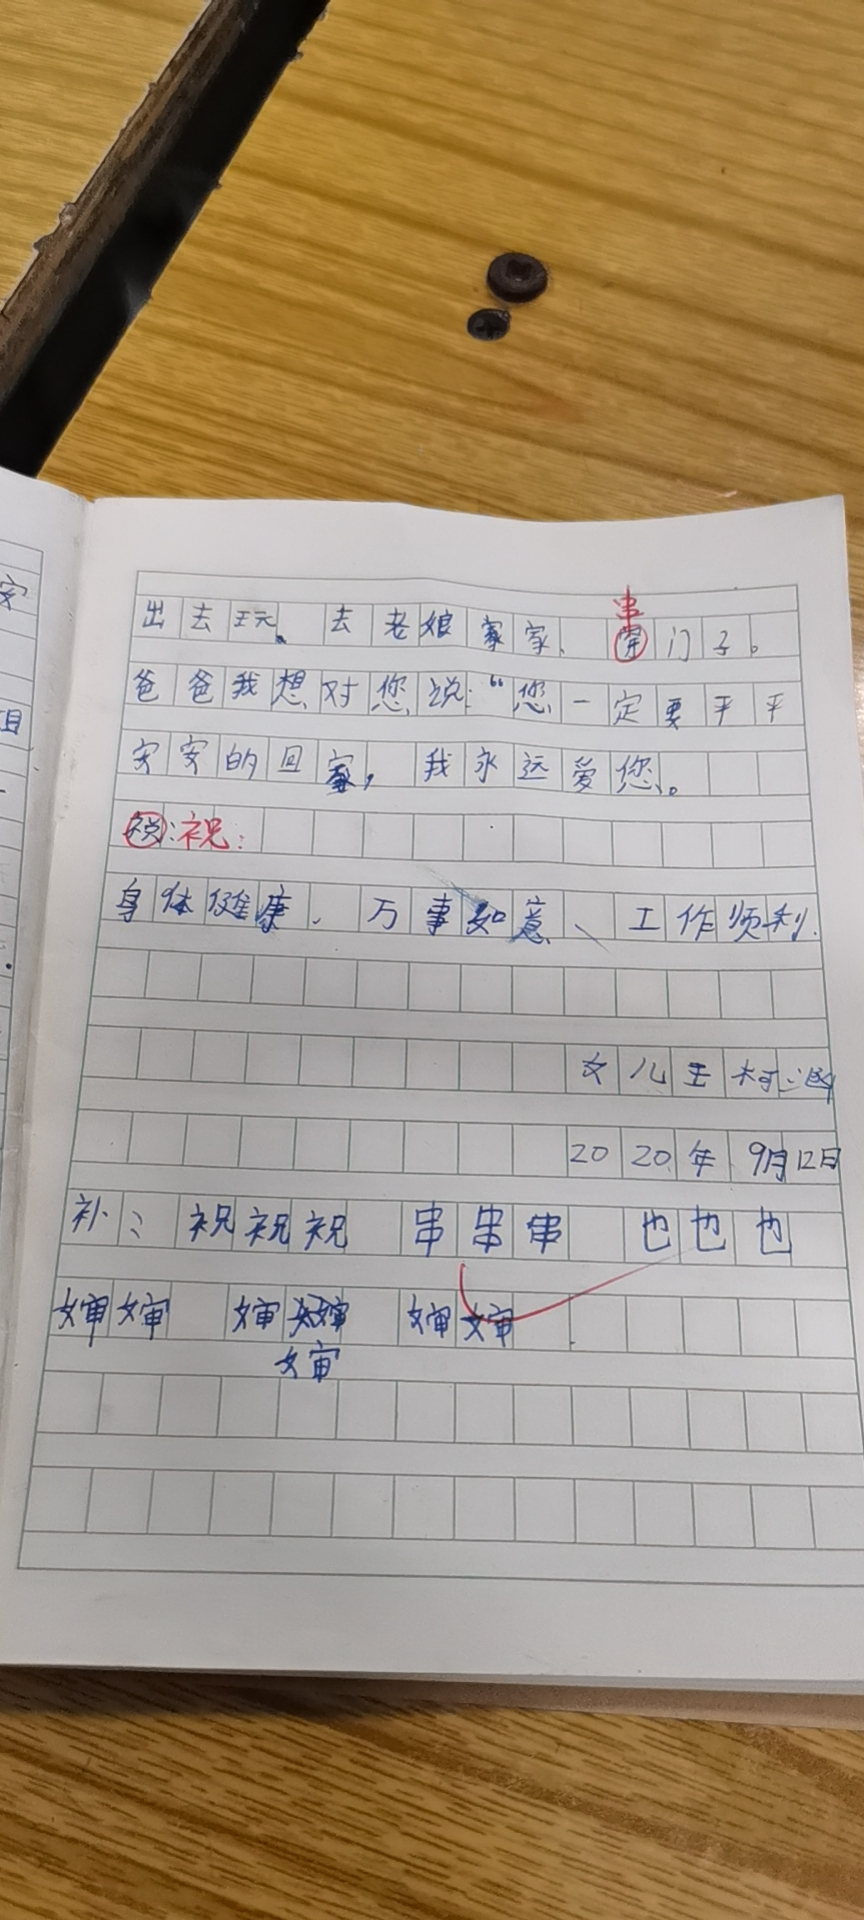 串
出去玩。去老娘家家、穿门子。
爸爸我想对您说:“您一定要平平
安安的回家,我永远爱您。
祝:
身体健康、万事如意、工作顺利.
女儿王柯
2020年9月12日
补:祝祝祝 串串串 也也也
婶婶 婶 婶婶
婶